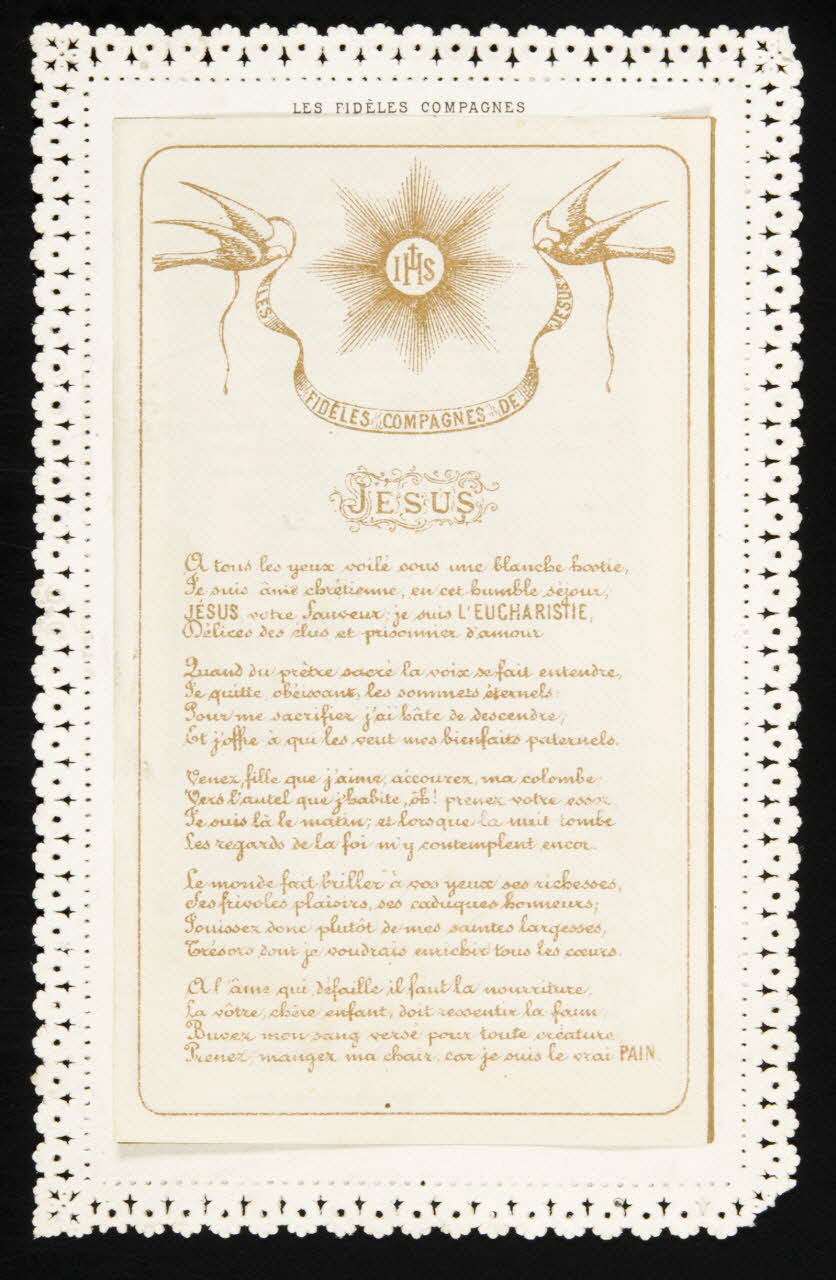 LES FIDÈLES COMPAGNES
IHS
LES FIDÈLES COMPAGNES DE JESUS
JESUS
A tous les yeux voilé sous une blanche hostie,
Je suis âme chrétienne, en cet humble séjour,
JÉSUS votre Sauveur; je suis L'EUCHARISTIE,
Délices des élus et prisonnier d'amour
Quand du prêtre sacré la voix se fait entendre,
Je quitte, obéissant, les sommets éternels
Pour me sacrifier j'ai hâte de descendre,
Et j'offre à qui les veut mes bienfaits paternels.
Venez, fille que j'aime, accourez, ma colombe
Vers l'autel que j'habite, oh! prenez votre essor
Je suis là le matin; et lorsque la nuit tombe
Les regards de la foi m'y contemplent encor.
Le monde fait briller à vos yeux ses richesses,
Ses frivoles plaisirs, ses caduques honneurs;
Jouissez donc plutôt de mes saintes largesses,
Trésors dont je voudrais enrichir tous les cœurs.
A l'âme qui défaille il faut la nourriture,
La vôtre, chère enfant, doit ressentir la faim
Buvez mon sang versé pour toute créature
Prenez, mangez ma chair, car je suis le vrai PAIN.